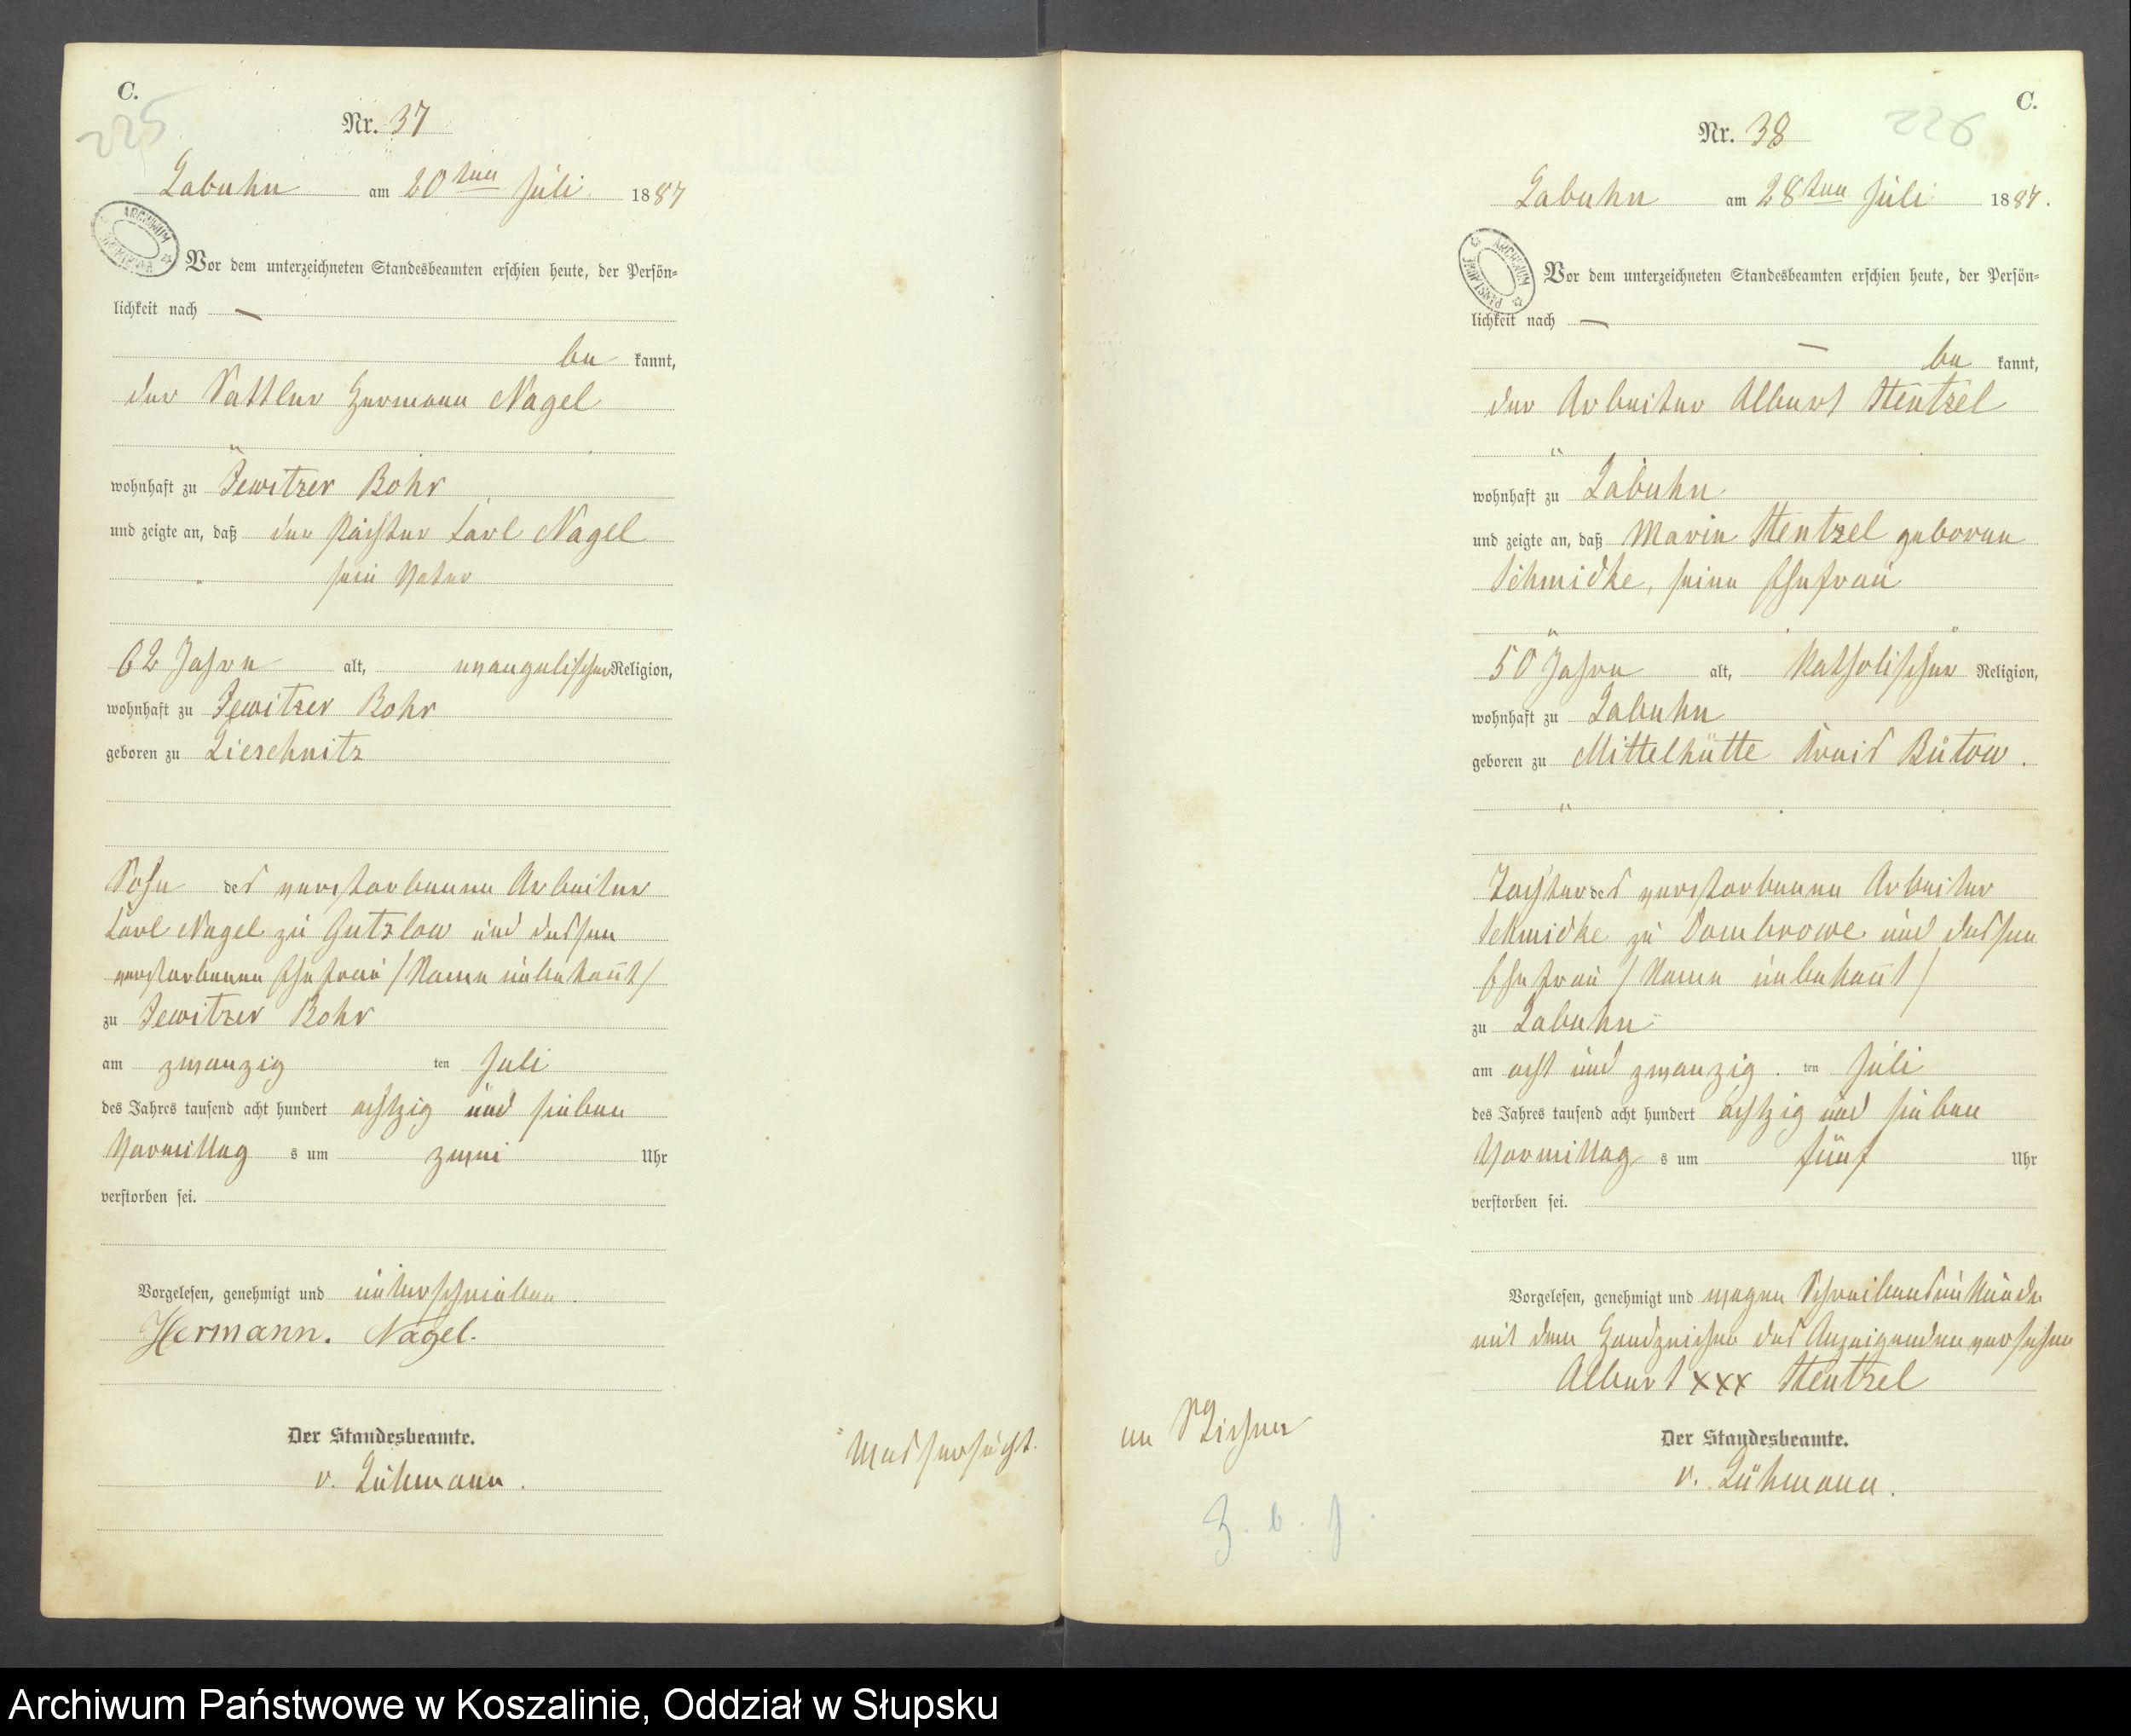 C.
225
Nr. 37
Labuhn am 20ten Juli 1887
ARCHIWUM
Vor dem unterzeichneten Standesbeamten erschien heute, der Persön-
lichkeit nach —
be kannt,
der Sattler Hermann Nagel
wohnhaft zu Jewitzer Bohr
und zeigte an, daß der Pächter Carl Nagel
sein Vater
62 Jahre alt, evangelischer Religion,
wohnhaft zu Jewitzer Bohr
geboren zu Lieschnitz
Sohn des verstorbenen Arbeiter
Carl Nagel zu Gutzlow und dessen
verstorbenen Ehefrau /Name unbekannt/
zu Jewitzer Bohr
am zwanzig ten Juli
des Jahres tausend acht hundert achtzig und sieben
Vormittag s um zwei Uhr
verstorben sei.
Vorgelesen, genehmigt und unterschrieben.
Hermann. Nagel.
Der Standesbeamte.
v. Lühmann.
Wassersucht.
C.
226
Nr. 38
Labuhn am 28ten Juli 1887.
ARCHIWUM PAŃSTWOWE
Vor dem unterzeichneten Standesbeamten erschien heute, der Persön-
lichkeit nach —
— be kannt,
der Arbeiter Albert Hentzel
wohnhaft zu Labuhn
und zeigte an, daß Marie Hentzel geborene
Schmidke, seine Ehefrau
50 Jahre alt, katholischer Religion,
wohnhaft zu Labuhn
geboren zu Mittelhütte Kreis Bütow.
Tochter des verstorbenen Arbeiter
Schmidke zu Dombrowe und dessen
Ehefrau /Name unbekannt/
zu Labuhn
am acht und zwanzig. ten Juli
des Jahres tausend acht hundert achtzig und sieben
Vormittag s um fünf Uhr
verstorben sei.
Vorgelesen, genehmigt und wegen Schreibensunkunde
mit dem Handzeichen des Anzeigenden versehen
Albert xxx Hentzel
Der Standesbeamte.
v. Lühmann.
an Stichen
Archiwum Państwowe w Koszalinie, Oddział w Słupsku